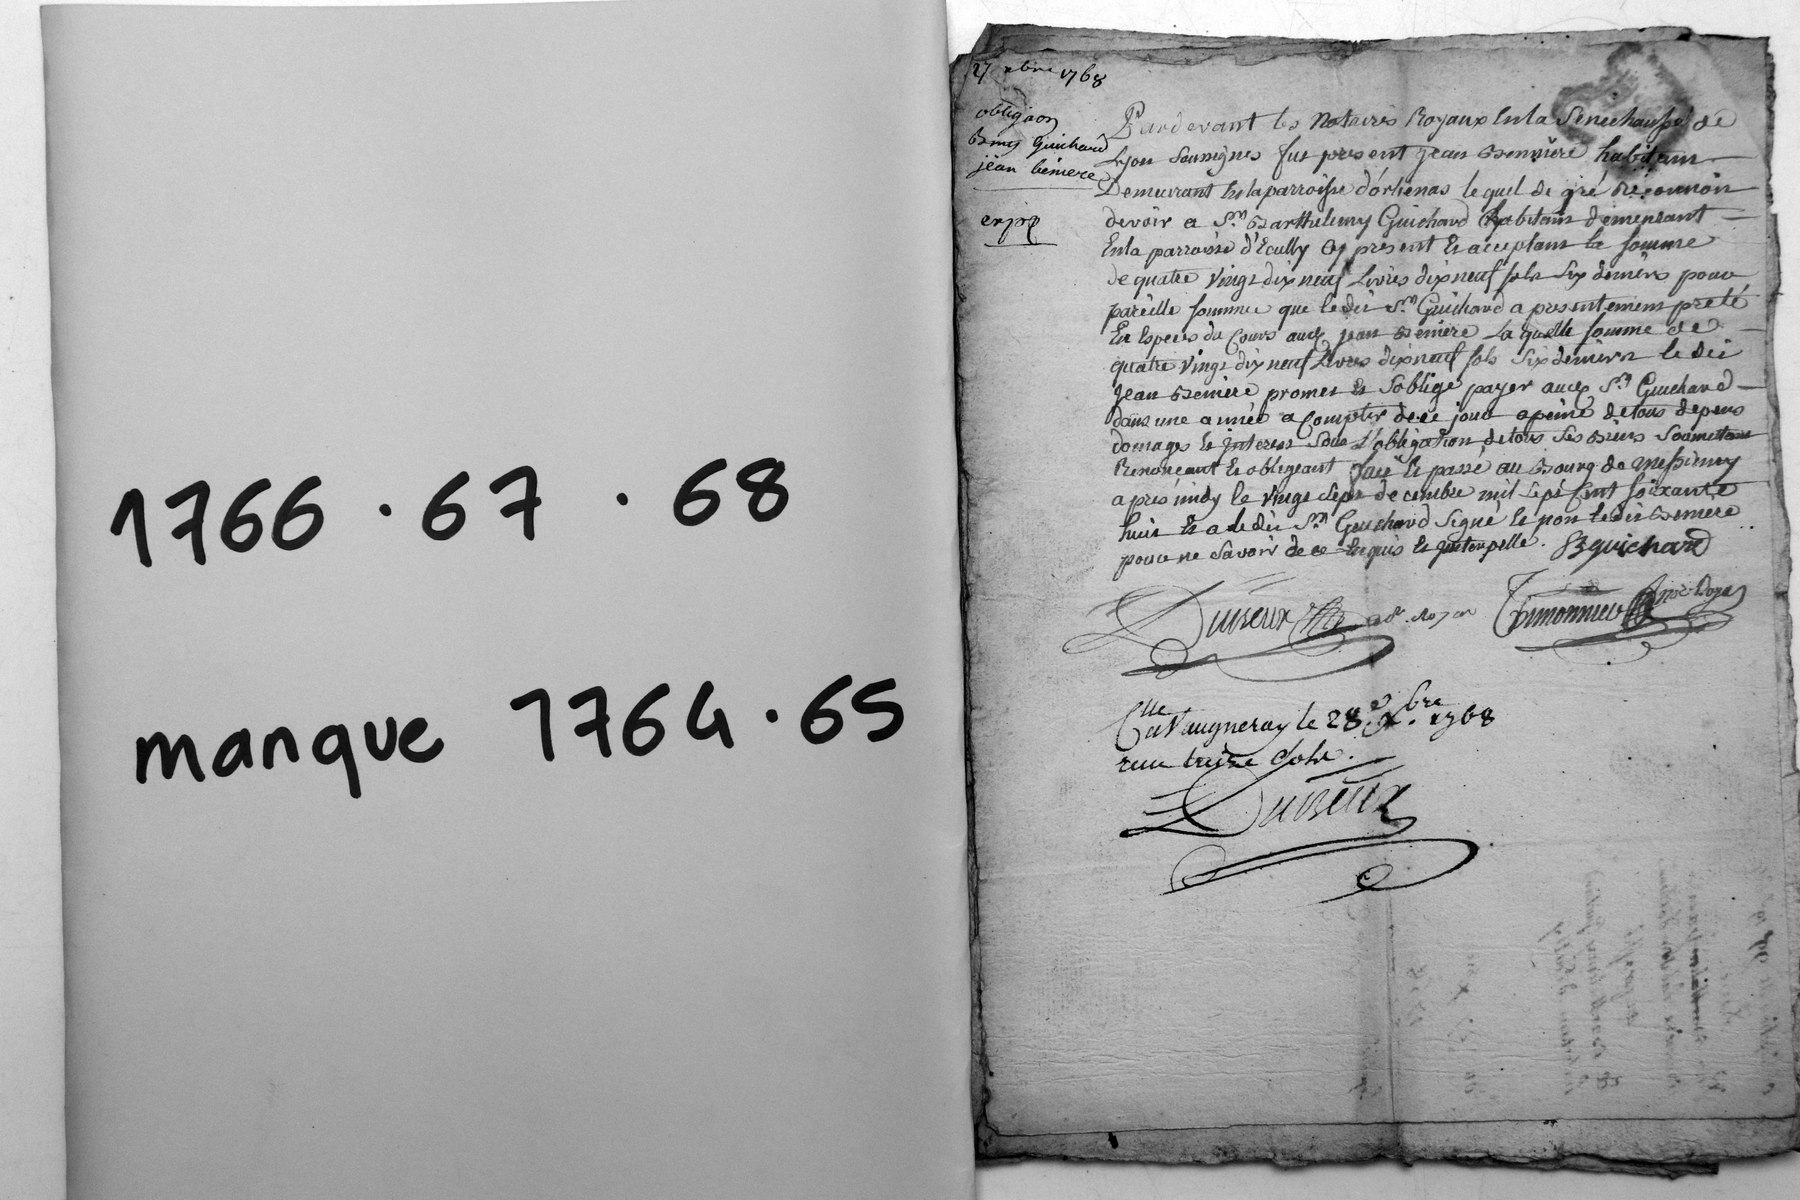 1766 · 67 · 68
manque 1764 · 65
27 xbre 1768
obligaon
Bmy Guichard
jean beniere
expé
Pardevant les Notaires Royaux En la Senechaussé de
Lyon Soussignés fut present jean Benniere habitant
Demeurant En la parroisse d'orlienas lequel de gré Reconnoit
devoir a Sr. Barthelemy Guichard habitant demeurant
En la parroisse d'Ecully Cy present Et acceptant la somme
de quatre vingt dix neuf Livres dix neuf sols Six deniers pour
pareille somme que le dit Sr. Guichard a presentement preté
En Especes du Cours audt jean Beniere La quelle somme de
quatre vingt dix neuf Livres dix neuf sols Six deniers le dit
Jean Beniere promet Et S'oblige payer audt Sr. Guichard
dans une année a Compter de ce jour a peine de tous depens
domages Et interets Sous L'obligation de tous Ses Biens Soumettant
Renonceant Et obligeant fait Et passé au Bourg de Messimy
apres midy le vingt Sept decembre mil Sept Cent Soixante
huit Et a le dit Sr. Guichard Signé Et non le dit Beniere
pour ne Savoir de ce Enquis Et Interpellé. B guichard
Duvieux Nre. Royal Thimonnier Nre Royal
Clle a Vaugneray le 28e. Xbre. 1768
reçu treize Sols.
Duvieux